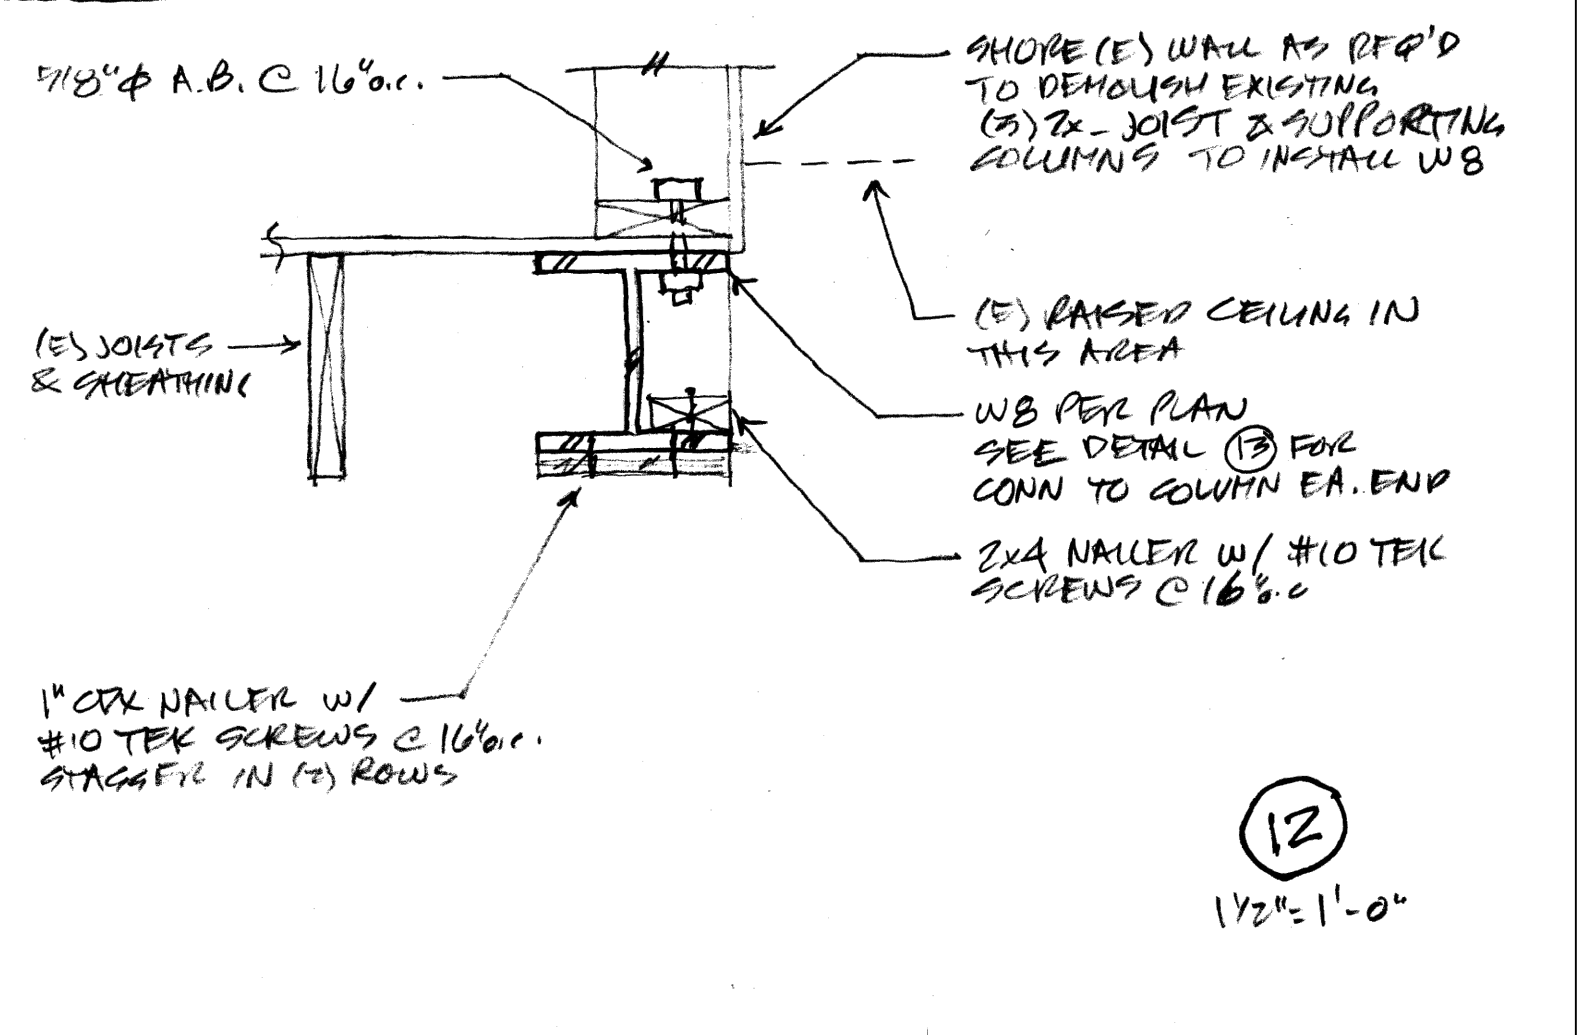 5/8"ϕ A.B. @ 16"o.c.
SHORE (E) WALL AS REQ'D
TO DEMOLISH EXISTING
(3) 2x_ JOIST & SUPPORTING
COLUMNS TO INSTALL W8
(E) JOISTS
& SHEATHING
(E) RAISED CEILING IN
THIS AREA
W8 PER PLAN
SEE DETAIL 13 FOR
CONN TO COLUMN EA. END
2x4 NAILER W/ #10 TEK
SCREWS @ 16"o.c
1" CDX NAILER W/
#10 TEK SCREWS @ 16"o.c.
STAGGER IN (2) ROWS
12
1 1/2"=1'-0"